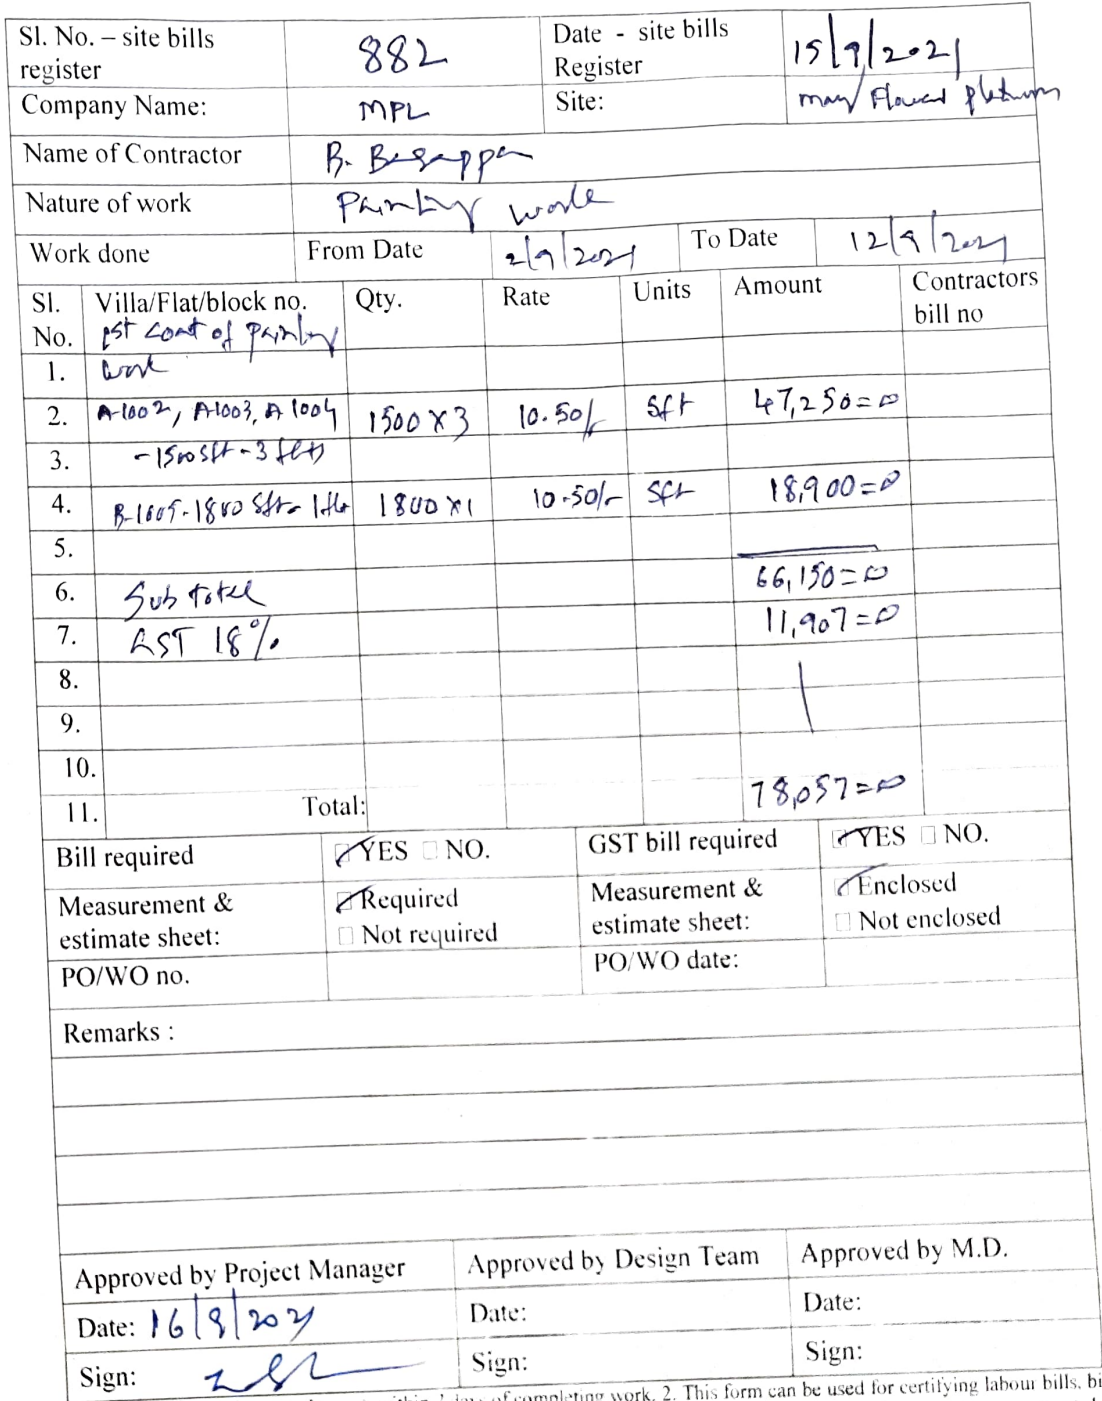 Sl. No. – site bills register 882 Date - site bills Register 15/9/2021
Company Name: MPL Site: May Flower Platinum
Name of Contractor B. Basappa
Nature of work Painting work
Work done From Date 2/9/2021 To Date 12/9/2021
Sl. No. Villa/Flat/block no. Qty. Rate Units Amount Contractors bill no
1st coat of painting
1. work
2. A-1002, A1003, A 1004 1500 x 3 10.50/- Sft 47,250=00
3. - 1500 Sft - 3 flts
4. 1800 Sft - 1 1800 x 1 10.50/- Sft 18,900=00
5.
6. Sub total 66,150=00
7. GST 18% 11,907=00
8.
9.
10.
11. Total: 78,057=00
Bill required YES NO. GST bill required YES NO.
Measurement & estimate sheet: Required Not required Measurement & estimate sheet: Enclosed Not enclosed
PO/WO no. PO/WO date:
Remarks :
Approved by Project Manager Approved by Design Team Approved by M.D.
Date: 16/9/2021 Date: Date:
Sign: Sign: Sign:
of completing work. 2. This form can be used for certifying labour bills, bi